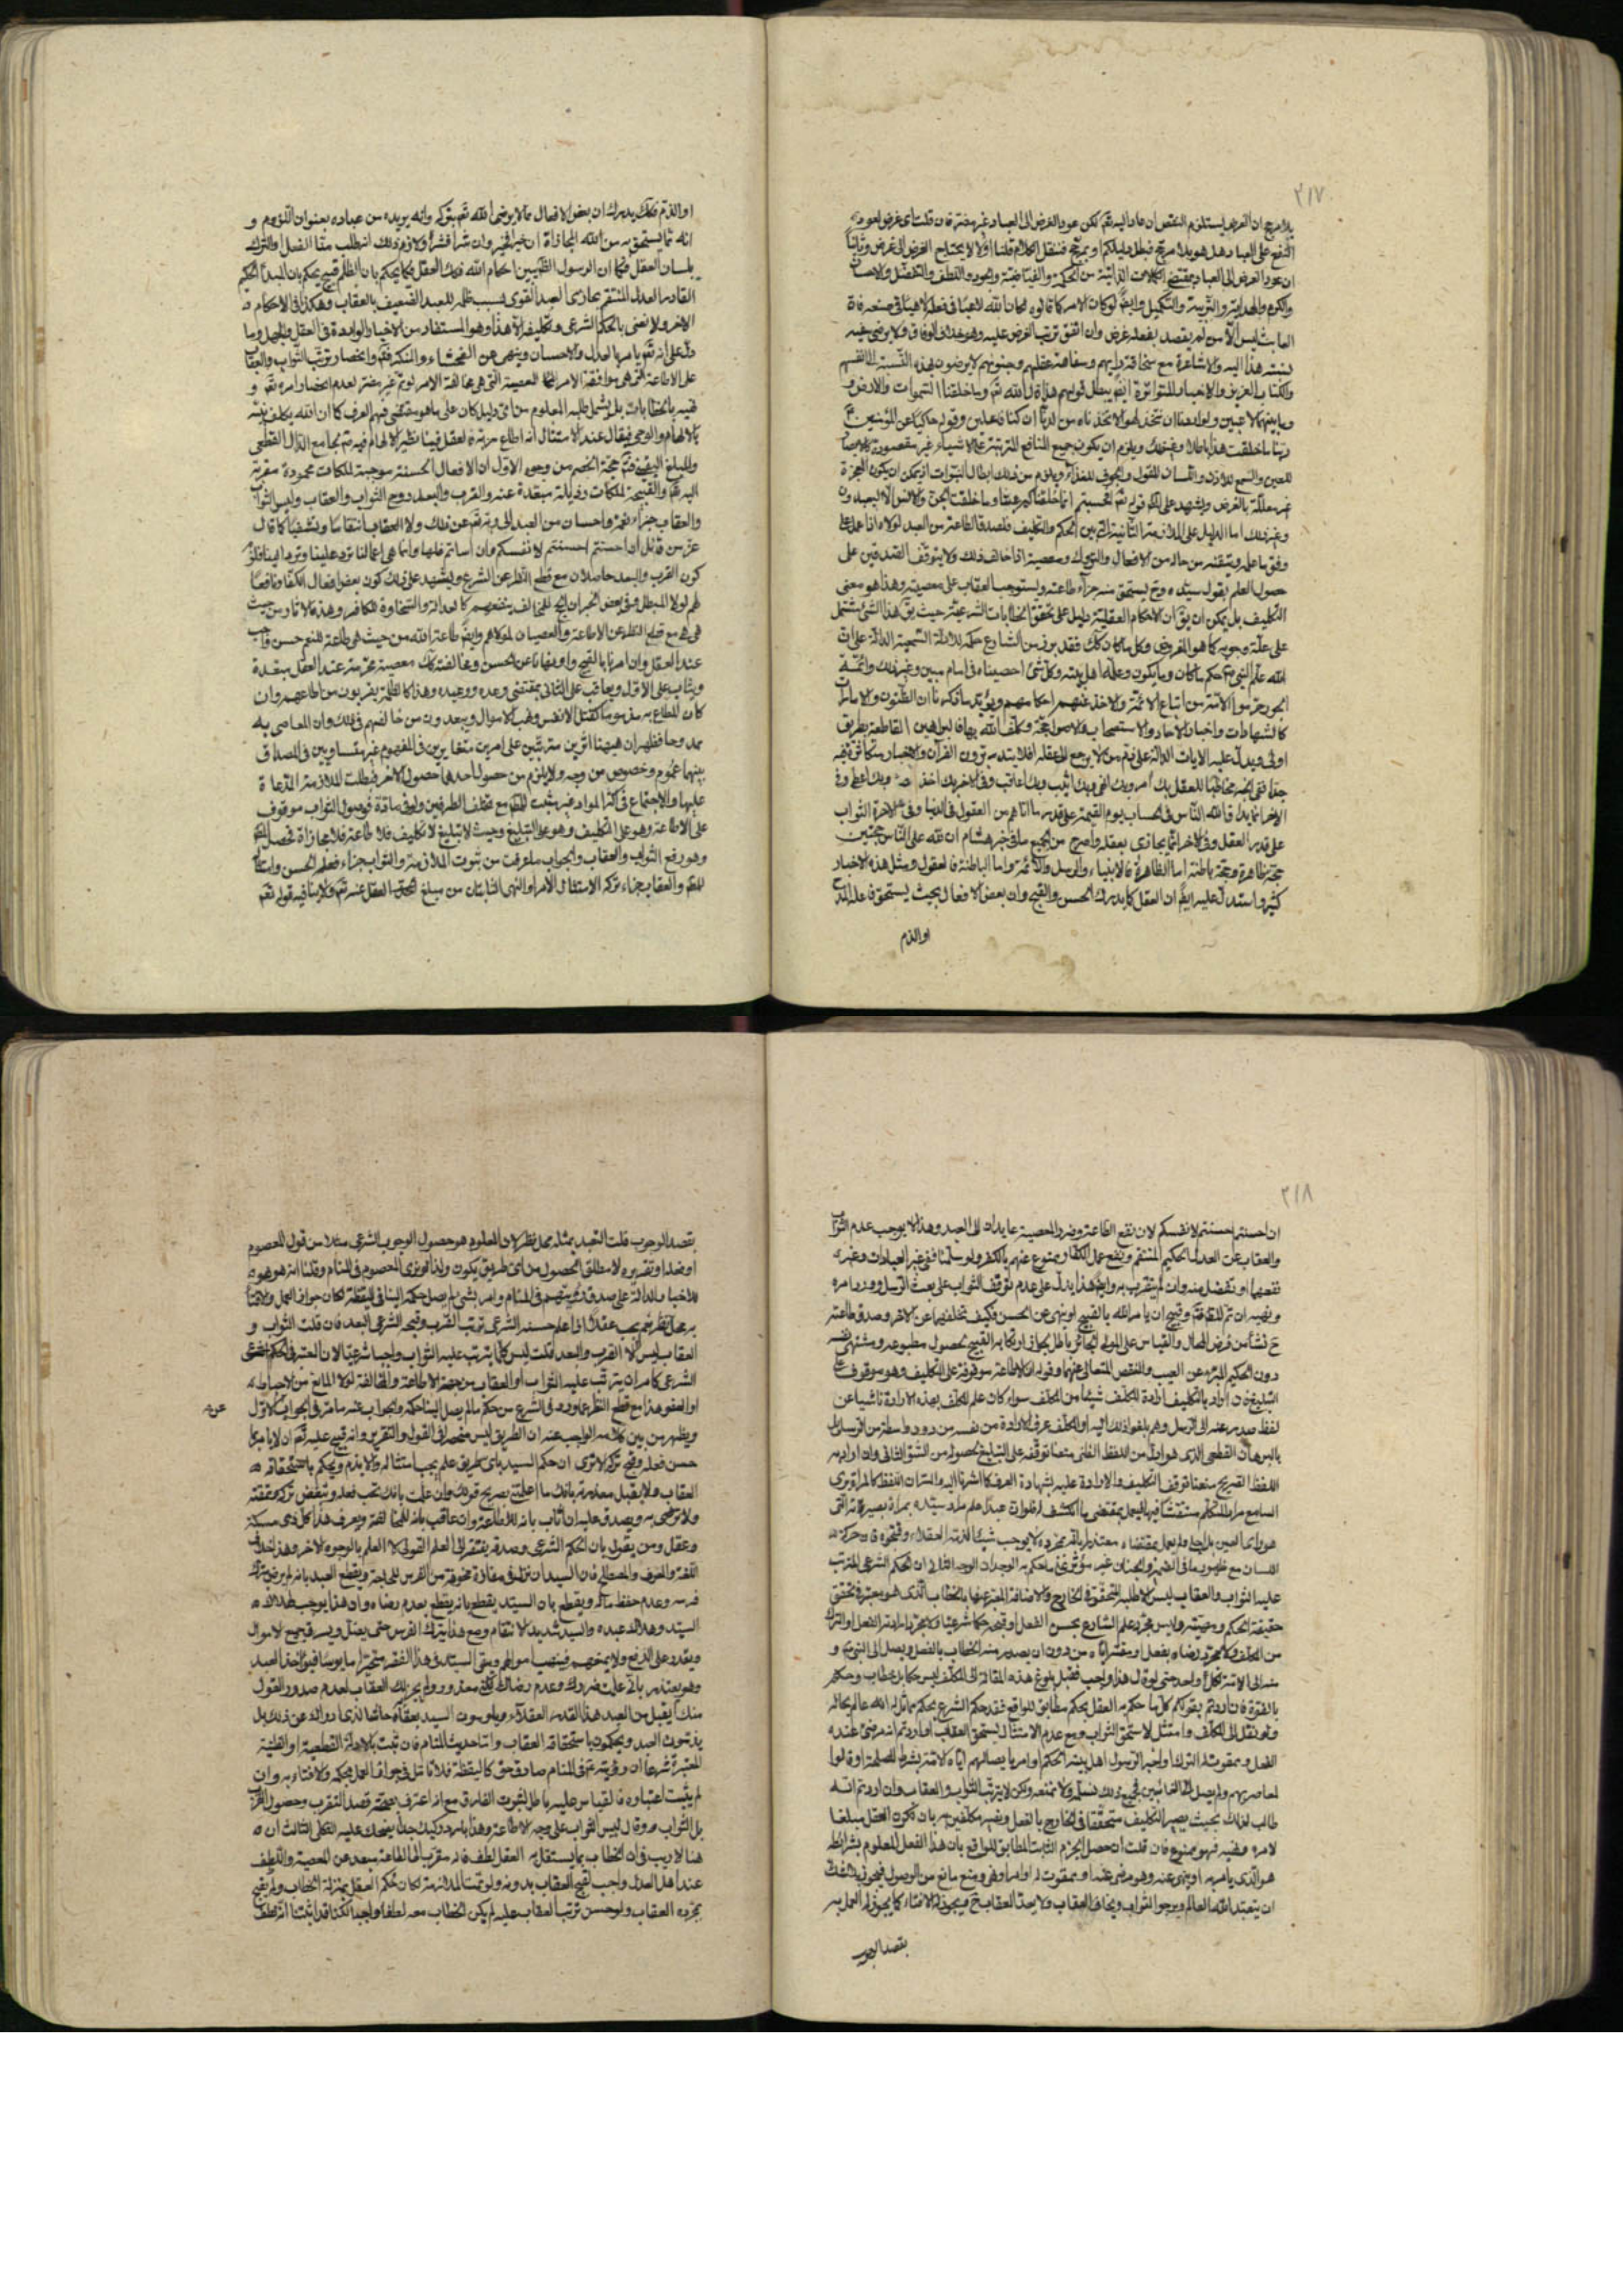 ٣١٧
بلا مرجح ان الغرض يستلزم النقص ان عاد اليه تعم لكن عود الغرض الى العباد غير مضر فان قلت اى غرض لعود
النفع على العباد هل هو بلا مرجح فبطل دليلكم او بمرجح فننقل الكلام قلنا اولا لا يحتاج الغرض الى غرض وثانيا
ان عود الغرض الى العباد بمقتضى الكمالات الذاتية من الحكمة والفياضية والجود واللطف والتفضل والاحسان
والكرم والهداية والتربية والتكميل وايضا لو كان الامر كما قالوه لكان الله لاعبا فى فعله لاهيا فى صنعه فان
العابث ليس الا من لم يقصد بفعله غرض وان اتفق ترتب الغرض عليه وهو خلاف الوفاق ولا يرضى
لنسبته هذا اليه والاشاعرة مع سخافة رايهم وسفاهة عقلهم وجنونهم لا يرضون بهذه النسبة الى انفسهم
والكتاب العزيز والاخبار المتواترة ايضا يبطل قولهم هذا قال الله تعم وما خلقنا السموات والارض و
ما بينهما لاعبين ولو اردنا ان نتخذ لهوا لاتخذناه من لدنا ان كنا فاعلين وقوله حكاية عن المؤمنين
ربنا ما خلقت هذا باطلا وغير ذلك ويلزم ان يكون جميع المنافع المترتبة على الاشياء غير مقصودة كالابصار
للعين والسمع للاذن واللسان للقول والجوف للغذاء ويلزم من ذلك ابطال النبوات اذ يمكن ان يكون المعجزة
غير معللة بالغرض ويشهد على ذلك قوله تعم افحسبتم انما خلقناكم عبثا وما خلقت الجن والانس الا ليعبدون
وغير ذلك اما الدليل على الملازمة الثانية التى بين الحكم والتكليف فلصدق الطاعة من العبد لمولاه اذا عمل على
وفق ما علمه وتيقنه من حاله من الافعال والتروك ومعصية اذا خالف ذلك ولا يتوقف الصدقين على
حصول العلم بقول سيده وح يستحق منه جزاء طاعته ويستوجب العقاب على معصيته وهذا هو معنى
التكليف بل يمكن ان يق ان الاحكام العقلية دليل على تحقق الخطابات الشرعية حيث يق هذا الشئ مشتمل
على علة وجوبه كما هو المفروض وكل ما كان كك فقد برز من الشارع حكمه للادلة السمعية الدالة على ان
الله علم النبى ص حكم ما كان وما يكون وعلمه اهل بيته وكل شئ احصيناه فى امام مبين وغير ذلك وائمة
الجور حرموا الامة من اتباع الائمة والاخذ عنهم احكامهم ويؤيد ما ذكرنا ان الظنون والامارات
كالشهادات واخبار الاحاد والاستصحاب والاصول حجة وكلف الله بها فالبراهين القاطعة بطريق
اولى ويدل عليه الايات الدالة على ذم من لا يرجع الى عقله افلا يتدبرون القرآن والاخبار متكاثرة فيه
جدا ففى الخبر مخاطبا للعقل بك امر وبك انهى وبك اثيب وبك اعاقب وفى الاخر بك اخذ وبك اعطى وفى
الاخر انما يداق الله الناس فى الحساب يوم القيمة على قدر ما اتاهم من العقول فى الدنيا وفى الاخر الثواب
على قدر العقل وفى الاخر انما يجازى بعقله واصرح من الجميع ما فى خبر هشام ان لله على الناس حجتين
حجة ظاهرة وحجة باطنة اما الظاهرة فالانبياء والرسل والائمة واما الباطنة فالعقول ومثل هذه الاخبار
كثير واستدل عليه ايضا ان العقل كما يدرك الحسن والقبح وان بعض الافعال بحيث يستحق فاعله المدح
او الذم
او الذم فكك يدرك ان بعض الافعال مما لا يرضى الله تعم بتركه وانه يريده من عباده بعنوان اللزوم و
انه مما يستحق به من الله المجازاة ان خيرا فخير وان شرا فشر ولازم ذلك انه طلب منا الفعل والترك
بلسان العقل فكما ان الرسول الظ يبين احكام الله فكك العقل فكما يحكم بان الظلم قبيح يحكم بان المبدأ الحكيم
القادر العدل المنتقم يجازى العبد القوى بسبب ظلمه للعبد الضعيف بالعقاب وهكذا فى الاحكام
الاخر ولا نعنى بالحكم الشرعى والتكليف الا هذا وهو المستفاد من الاخبار الواردة فى العقل والجهل وما
دل على انه تعم يأمر بالعدل والاحسان وينهى عن الفحشاء والمنكر فتم وانحصار ترتب الثواب والعقاب
على الاطاعة التى هى موافقة الامر والمعصية التى هى مخالفة الامر لو تم غير مضر لعدم انحصار امره تعم و
نهيه بالخطابات بل يشمل طلبه المعلوم من اى دليل كان على ما هو مقتضى فهم العرف كما ان الله يكلف نبيه
بالالهام والوحى فيقال عند الامتثال انه اطاع ربه فالعقل فينا نظير الالهام فيه تم بجامع الدال القطعى
والمبلغ اليقينى حجة الخصم من وجوه الاول ان الافعال الحسنة موجبة لملكات محمودة مقربة
اليه تعم والقبيحة لملكات رذيلة مبعدة عنه والقرب والبعد روح الثواب والعقاب وليس الثواب
والعقاب جزاء نعمة واحسان من العبد الى ربه تعم عن ذلك ولا العقاب انتقاما وتشفيا كما قال
عز من قائل ان احسنتم احسنتم لانفسكم وان اسأتم فلها وانما هى اعمالنا ترد علينا
كون القرب والبعد حاصلان مع قطع النظر عن الشرع ويشهد على ذلك كون بعض افعال الكفار نافعا
لهم لولا المبطل وفى بعض اخبار ان الخير للمخالف ينفعهم كالعدالة والسخاوة للكافر وهذه الاثار من حيث
هى هى مع قطع النظر عن الاطاعة والعصيان لمولاهم وايضا طاعة الله من حيث هى طاعة للمنعم حسن واجب
عند العقل وان امرنا بالقبح واو نهانا عن الحسن ومخالفته كك معصية محرمة عند العقل مبعدة
ويثاب على الاول ويعاقب على الثانى بمقتضى وعده ووعيده وهذا كالظلمة يقربون من اطاعهم وان
كان المطاع به مذموما كقتل الانفس ونهب الاموال ويبعدون من خالفهم فى ذلك وان المعاصى به
ممدوحا فظهر ان هيهنا اثرين مترتبين على امرين متغايرين فى المفهوم غير متساويين فى المصداق
بينهما عموم وخصوص من وجه ولا يلزم من حصول احدهما حصول الاخر فبطلت الملازمة المدعاة
عليها والاجتماع فى اكثر المواد غير مثبت للتلازم مع تخلف الطرفين ولو فى مادة فوصول الثواب موقوف
على الاطاعة وهو على التكليف وهو على التبليغ وحيث لا تبليغ لا تكليف فلا طاعة فلا مجازاة فحصل
وهو رفع الثواب والعقاب والجواب ما عرفت من ثبوت الملازمة والثواب جزاء فعله الحسن
والعقاب جزاء تركه الامتثال الامر او النهى الثابتان من مبلغ العقل عنه تعم ولا ينافيه قوله تعم
٣١٨
ان احسنتم احسنتم لانفسكم لان نفع الطاعة وضرر المعصية عايدان الى العبد وهذا لا يوجب عدم الثواب
والعقاب عن العدل الحكيم المنتقم ونفع عمل الكفار ممنوع عنهم بالكفر ولو سلمنا ففى غير العبادات وغيره
نفعها او تفضل منه وان لم يتقرب به وايضا هذا يدل على عدم توقف الثواب على بعث الرسل وورود امره
ونهيه ان تم المقدمة وقبيح ان يامر الله بالقبيح او ينهى عن الحسن فكيف تخلفهما عن الاخر وصدق طاعته
ح نشأ من فرض المحال والقياس على المولى الجائز باطل بجهله او ارتكابه القبيح لحصول مطبوعه ومشتهى نفسه
دون الحكيم المبره عن العيب والنقص المتعالى عنهما وقوله ان الاطاعة موقوفة على التكليف وهو موقوف على
التبليغ فان اراد بالتكليف ارادة المكلف شيئا من المكلف سواء كان علم المكلف بهذه الارادة ناشيا عن
لفظ صدر عنه الى الرسل وهم بلغوا ذلك اليه او المكلف عرف الارادة من نفسه من دون واسطة من الرسل بل
بالبرهان القطعى الذى هو ادل من اللفظ الظنى منعنا توقفه على التبليغ لحصوله من الشق الثانى وان اراد به
اللفظ الصريح منعنا توقف التكليف والارادة عليه بشهادة العرف كما اشرنا اليه
السامع مراد المتكلم
عليه الثواب والعقاب ليس الا طلبه المتحقق فى الخارج والاضافة المعبر عنها بالخطاب الذى هو معتبر فى تحقق
حقيقة الحكم ومهيته وليس مجرد علم الشارع بحسن الفعل او قبحه حكما شرعيا ولا مجرد ارادته الفعل او الترك
من المكلف ولا مجرد رضاه بفعل او مقته اياه من دون ان يصدر منه الخطاب بالفعل ويصل الى النبى ص و
منه الى الامة لكل واحد حتى لو قال هذا واجب فقبل بلوغ هذه المقالة الى المكلف ليس حكما بل خطاب وحكم
بالقوة فان اردتم بقولكم كل ما حكم به العقل بحكم مطابق للواقع فقد حكم الشرع بحكم مماثل له ان الله عالم بحاله
ولو نقل الى المكلف وامتثل لاستحق الثواب ومع عدم الامتثال يستحق العقاب او اردتم انه مرضى عنده
الفعل وممقوت له الترك او اخبر الرسول اهل بيته الحكم او امر بايصالهم اياه للامة بشرط المصلحة او قالوا
لمعاصريهم ولم يصل الى الغائبين فجميع ذلك نسلم ولا نمنعه ولكن لا يترتب الثواب والعقاب وان اردتم انه
طالب لذلك بحيث يصير التكليف متحققا فى الخارج بالفعل ونصير مكلفين به بان يكون العقل مبلغا
لامره ونهيه فهو ممنوع فان قلت ان حصل الجزم الثابت المطابق للواقع بان هذا الفعل المعلوم بشرائطه
هو الذى يامر به او ينهى عنه وهو مرضى عنه او ممقوت له او امر او نهى ومنع مانع من الوصول فيجوز لذلك
ان يتعبد الله العالم ويرجو الثواب ويخاف العقاب ولا يعد العقاب قبيحا ويجوز له الافتاء كما يجوز له العمل به
بقصد الوجوب
بقصد الوجوب قلت التعبد بمثله محل نظر لان المعلوم هو حصول الوجوب الشرعى مثلا من قول المعصوم
او فعله او تقريره لا مطلق الحصول من اى طريق يكون ولذا لو نرى المعصوم فى المنام وقلنا انه هو هو
للاخبار الدالة على صدق رؤيتهم فى المنام وامر بشئ لم يصل حكمه الينا فى اليقظة لكان جواز العمل والافتاء
به محل نظر نعم يجب عقلا اذا علم حسنه الشرعى ترتب القرب وقبحه الشرعى البعد فان قلت الثواب و
العقاب ليس الا القرب والبعد قلت ليس كلما يترتب عليه الثواب واجبا شرعيا لان المعتبر فى الحكم
الشرعى كما مر ان يترتب عليه الثواب او العقاب من جهة الاطاعة والمخالفة لولا المانع من الاحباط
او العفو هذا مع قطع النظر عما ورد فى الشرع من حكم ما لم يصل الينا حكمه والجواب عنه ما مر فى الجواب الاول
ويظهر من بين كلامه الواجب عنه ان الطريق ليس منحصرا فى القول والتقرير وانه قبيح عليه تعم ان لا يامر بما
حسن فعله وقبح تركه الا ترى ان حكم السيد باى طريق علم يجب امتثاله والا يذم ويحكم باستحقاقه
العقاب ولا يقبل معذرته بانك ما اعلمتنى بصريح قولك وان علمت بانك تحب فعله وتبغض تركه
ولا ترضى به ويصدق عليه ان اثاب بانه للاطاعة وان عاقب بانه للمخالفة ويعرف هذا كل ذى مسكة
وعقل ومن يقول بان الحكم الشرعى وصدقه يفتقر الى العلم القولى لا العلم بالوجوه الاخر وهذا خلاف
اللغة والعرف والمصطلح فان السيد ان نزل فى مفازة مخوفة من الفرس لراحة ويقطع العبد بانه لم يرض بترك
فرسه وعدم حفظ ماله ويقطع بان السيد يقطع بانه يقطع بعدم رضاه وان هذا يوجب هلاك
السيد وهلاك عبده والسيد شديد الانتقام ومع هذا يترك الفرس حتى يضل ويسرق جميع الاموال
ويقدر على الدفع ولا يمنعهم
وهو يعتذر بانى علمت ضررك وعدم رضاك لكنى معذور ولم يجز لك العقاب لعدم صدور القول
منك ايقبل من العبد هذا القدر العقلاء ويلومون السيد بعقابه حاشا لذى رأى ذلك عن ذلك بل
يذمون العبد ويحكمون باستحقاقه العقاب واما حديث المنام فان ثبت بالادلة القطعية او الظنية
المعتبرة شرعا ان رؤيته تم فى المنام صادق حتى كاليقظة فلا تامل فى جواز العمل بحكمه والافتاء به وان
لم يثبت اعتباره فالقياس عليه باطل لثبوت الفارق مع انه اعترف بصحة قصد التقرب وحصول القرب
بل الثواب وقال ليس الثواب على وجه الاطاعة وهذا بارد ركيك جدا يضحك عليه الثكلى الثالث ان
هنا لا ريب فى ان الخطاب بما يستقل به العقل لطف فانه مقرب الى الطاعة مبعد عن المعصية واللطف
عند اهل العدل واجب لقبح العقاب بدونه ولو تمت الملازمة لكان حكم العقل بمنزلة الخطاب ولم يقبح
بمجرده العقاب ولو حسن ترتب العقاب عليه لم يكن الخطاب معه لطفا واجبا لكنا قد اثبتنا انه لطف